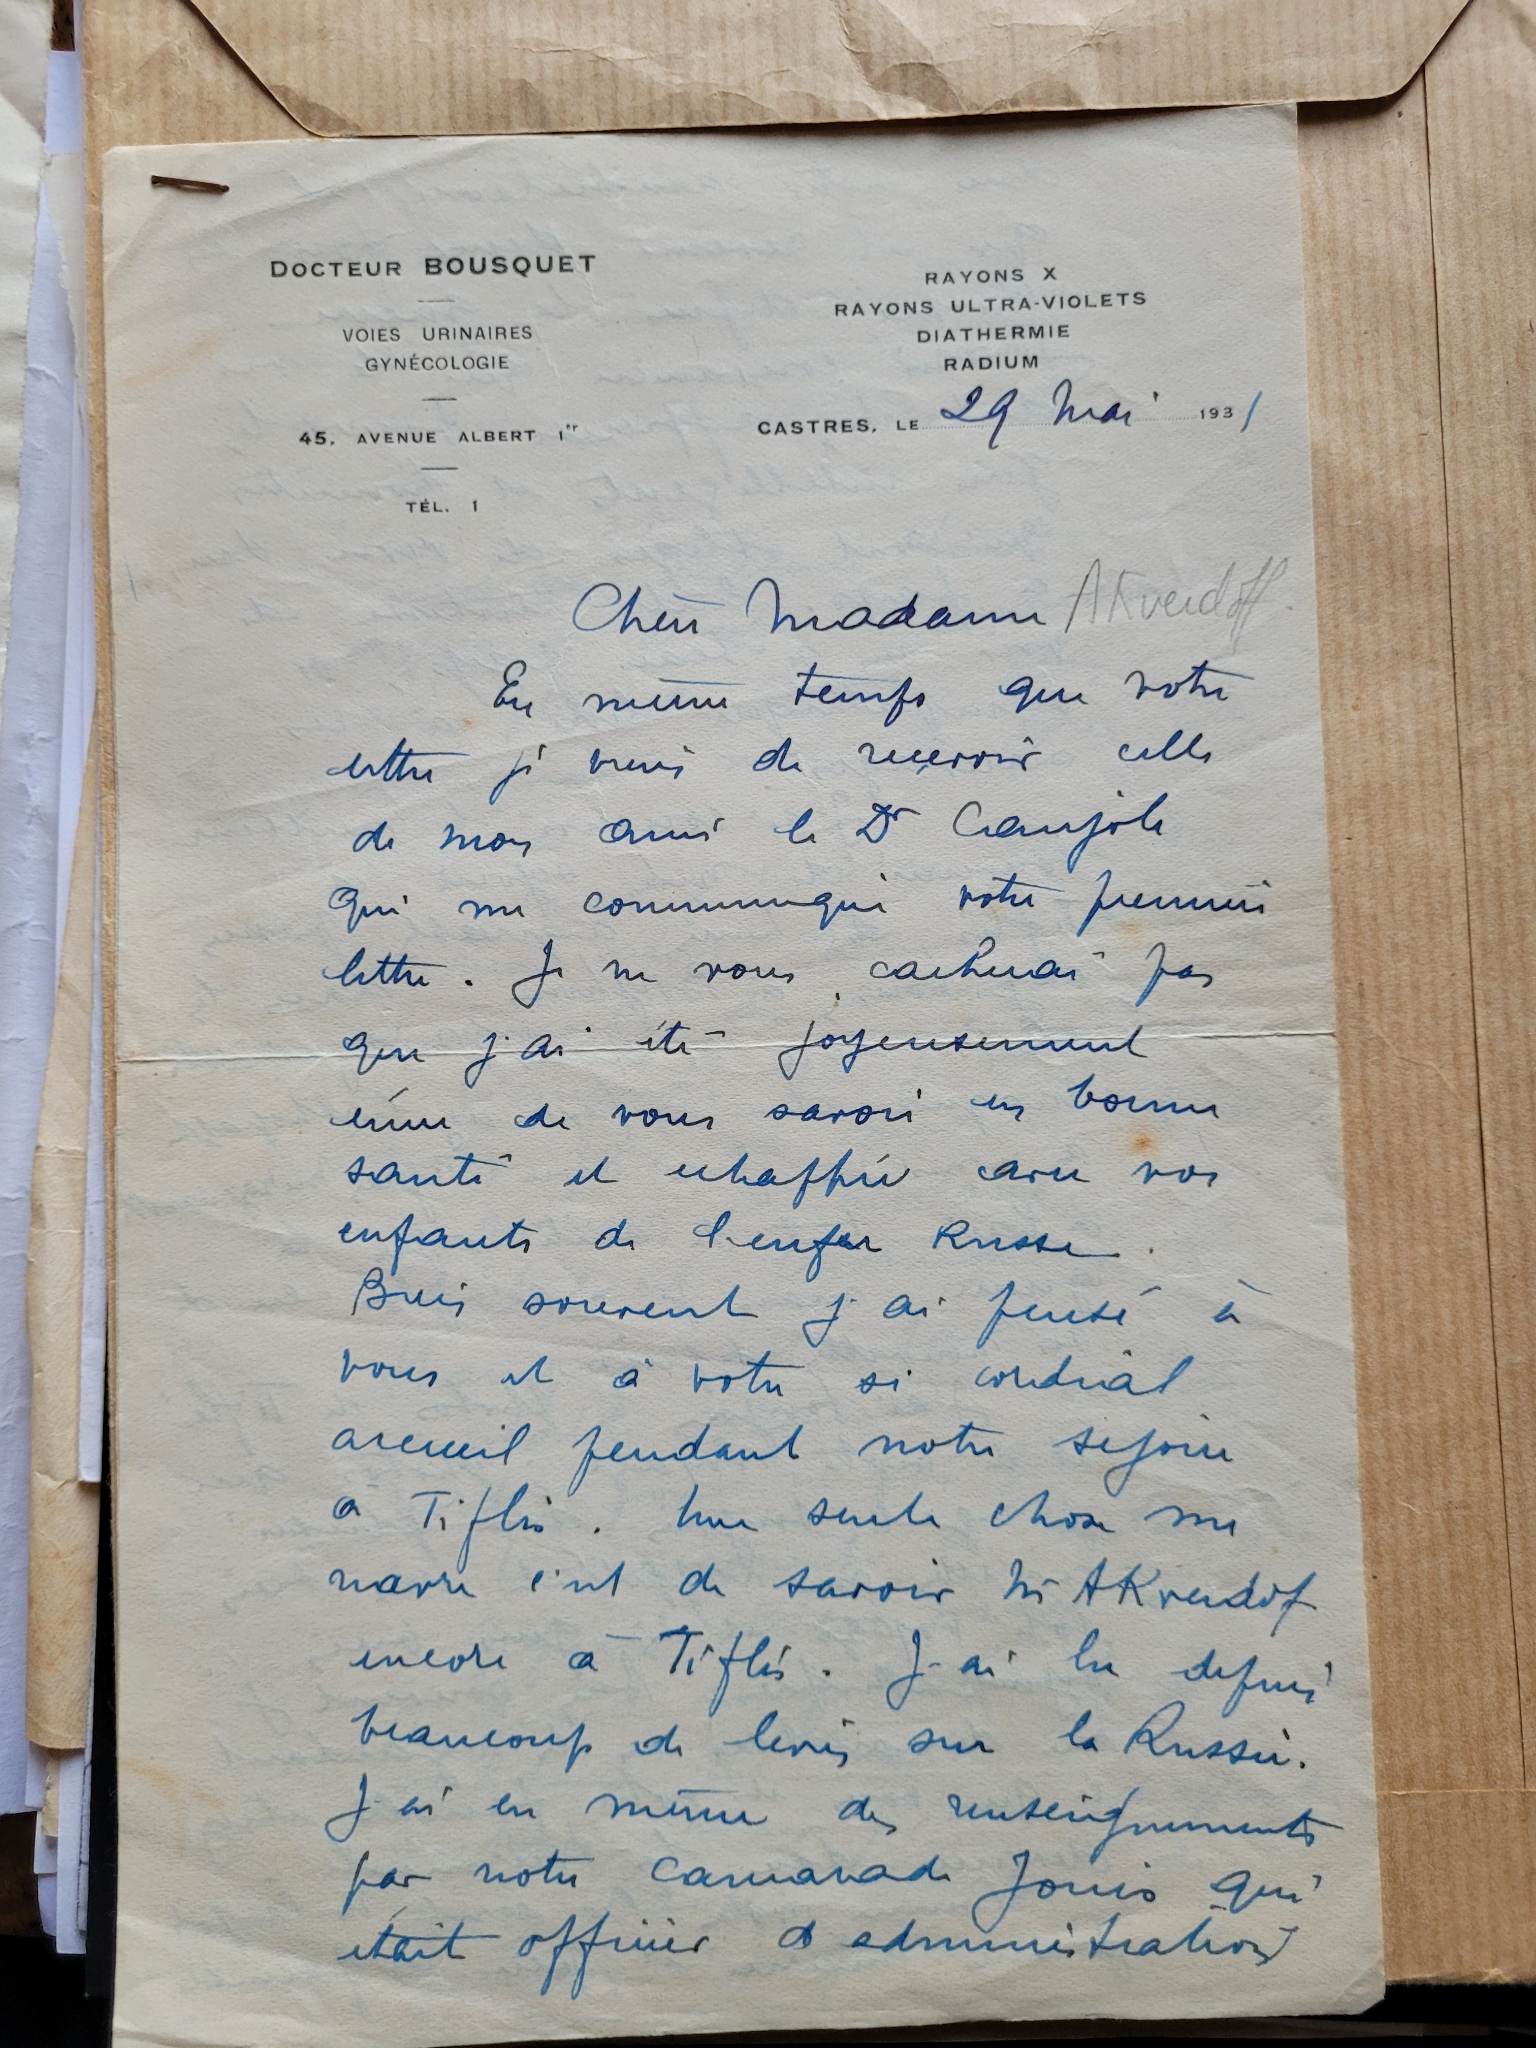 DOCTEUR BOUSQUET
VOIES URINAIRES
GYNÉCOLOGIE
45, AVENUE ALBERT Ier
TÉL. 1
RAYONS X
RAYONS ULTRA-VIOLETS
DIATHERMIE
RADIUM
CASTRES, LE 29 Mai 1931
Chère Madame AKverdoff.
En même temps que votre
lettre je viens de recevoir celle
de mon ami le Dr Caujole
qui me communique votre première
lettre. Je ne vous cacherai pas
que j'ai été joyeusement
ému de vous savoir en bonne
santé et échappée avec vos
enfants de l'enfer Russe.
Bien souvent j'ai pensé à
vous et à votre si cordial
accueil pendant notre séjour
à Tiflis. Une seule chose me
navre c'est de savoir Mr AKverdof
encore à Tiflis. J'ai lu depuis
beaucoup de livres sur la Russie.
J'ai eu même des renseignements
par notre camarade Jouis qui
était officier d'administration